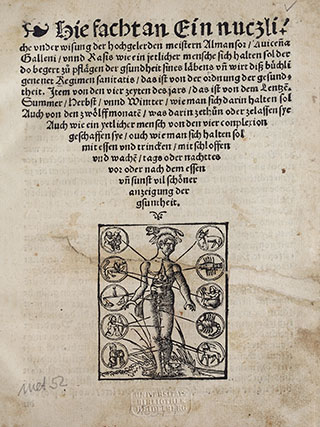 Hie facht an Ein nuczli⸗
che vnder wisung der hochgelerden meistern Almansor / Auicēna
Galleni / vnnd Rasis wie ein jetlicher mensche sich halten sol der
do begert zů pflägen der gsundheit sines läbens vn̄ wirt diß bůchli
genenet Regimen sanitatis / das ist von der ordnung der gesund⸗
theit. Item von den vier zeyten des jars / das ist von dem Lentzē.
Summer / Herbst / vnnd Winter / wie man sich darin halten sol
Auch von den zwölff monatē / was darin zethůn oder zelassen sye
Auch wie ein yetlicher mensch von den vier complexion
geschaffen sye / ouch wie man sich halten sol
mit essen vnd trincken / mit schloffen
vnd wachē / tags oder nachttes
vor oder nach dem essen
vn̄ sunst vil schöner
anzeigung der
gsuntheit.
met 52
UNIVERSITÄTS
BIBLIOTHEK
HEIDELBERG